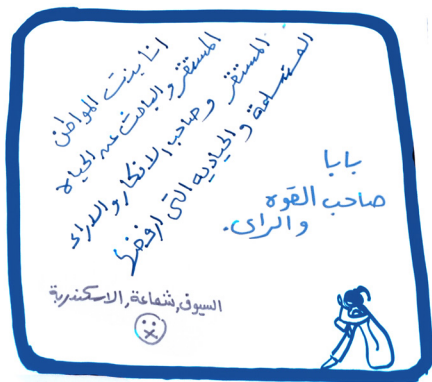 انا بنت المواطن
المستقر والباحث عن الحياه
المستقر وصاحب الافكار والاراء
المتسامحة والحياديه التى ارفضها
بابا
صاحب القوه
والراى.
السيوف, شماعة, الاسكندرية